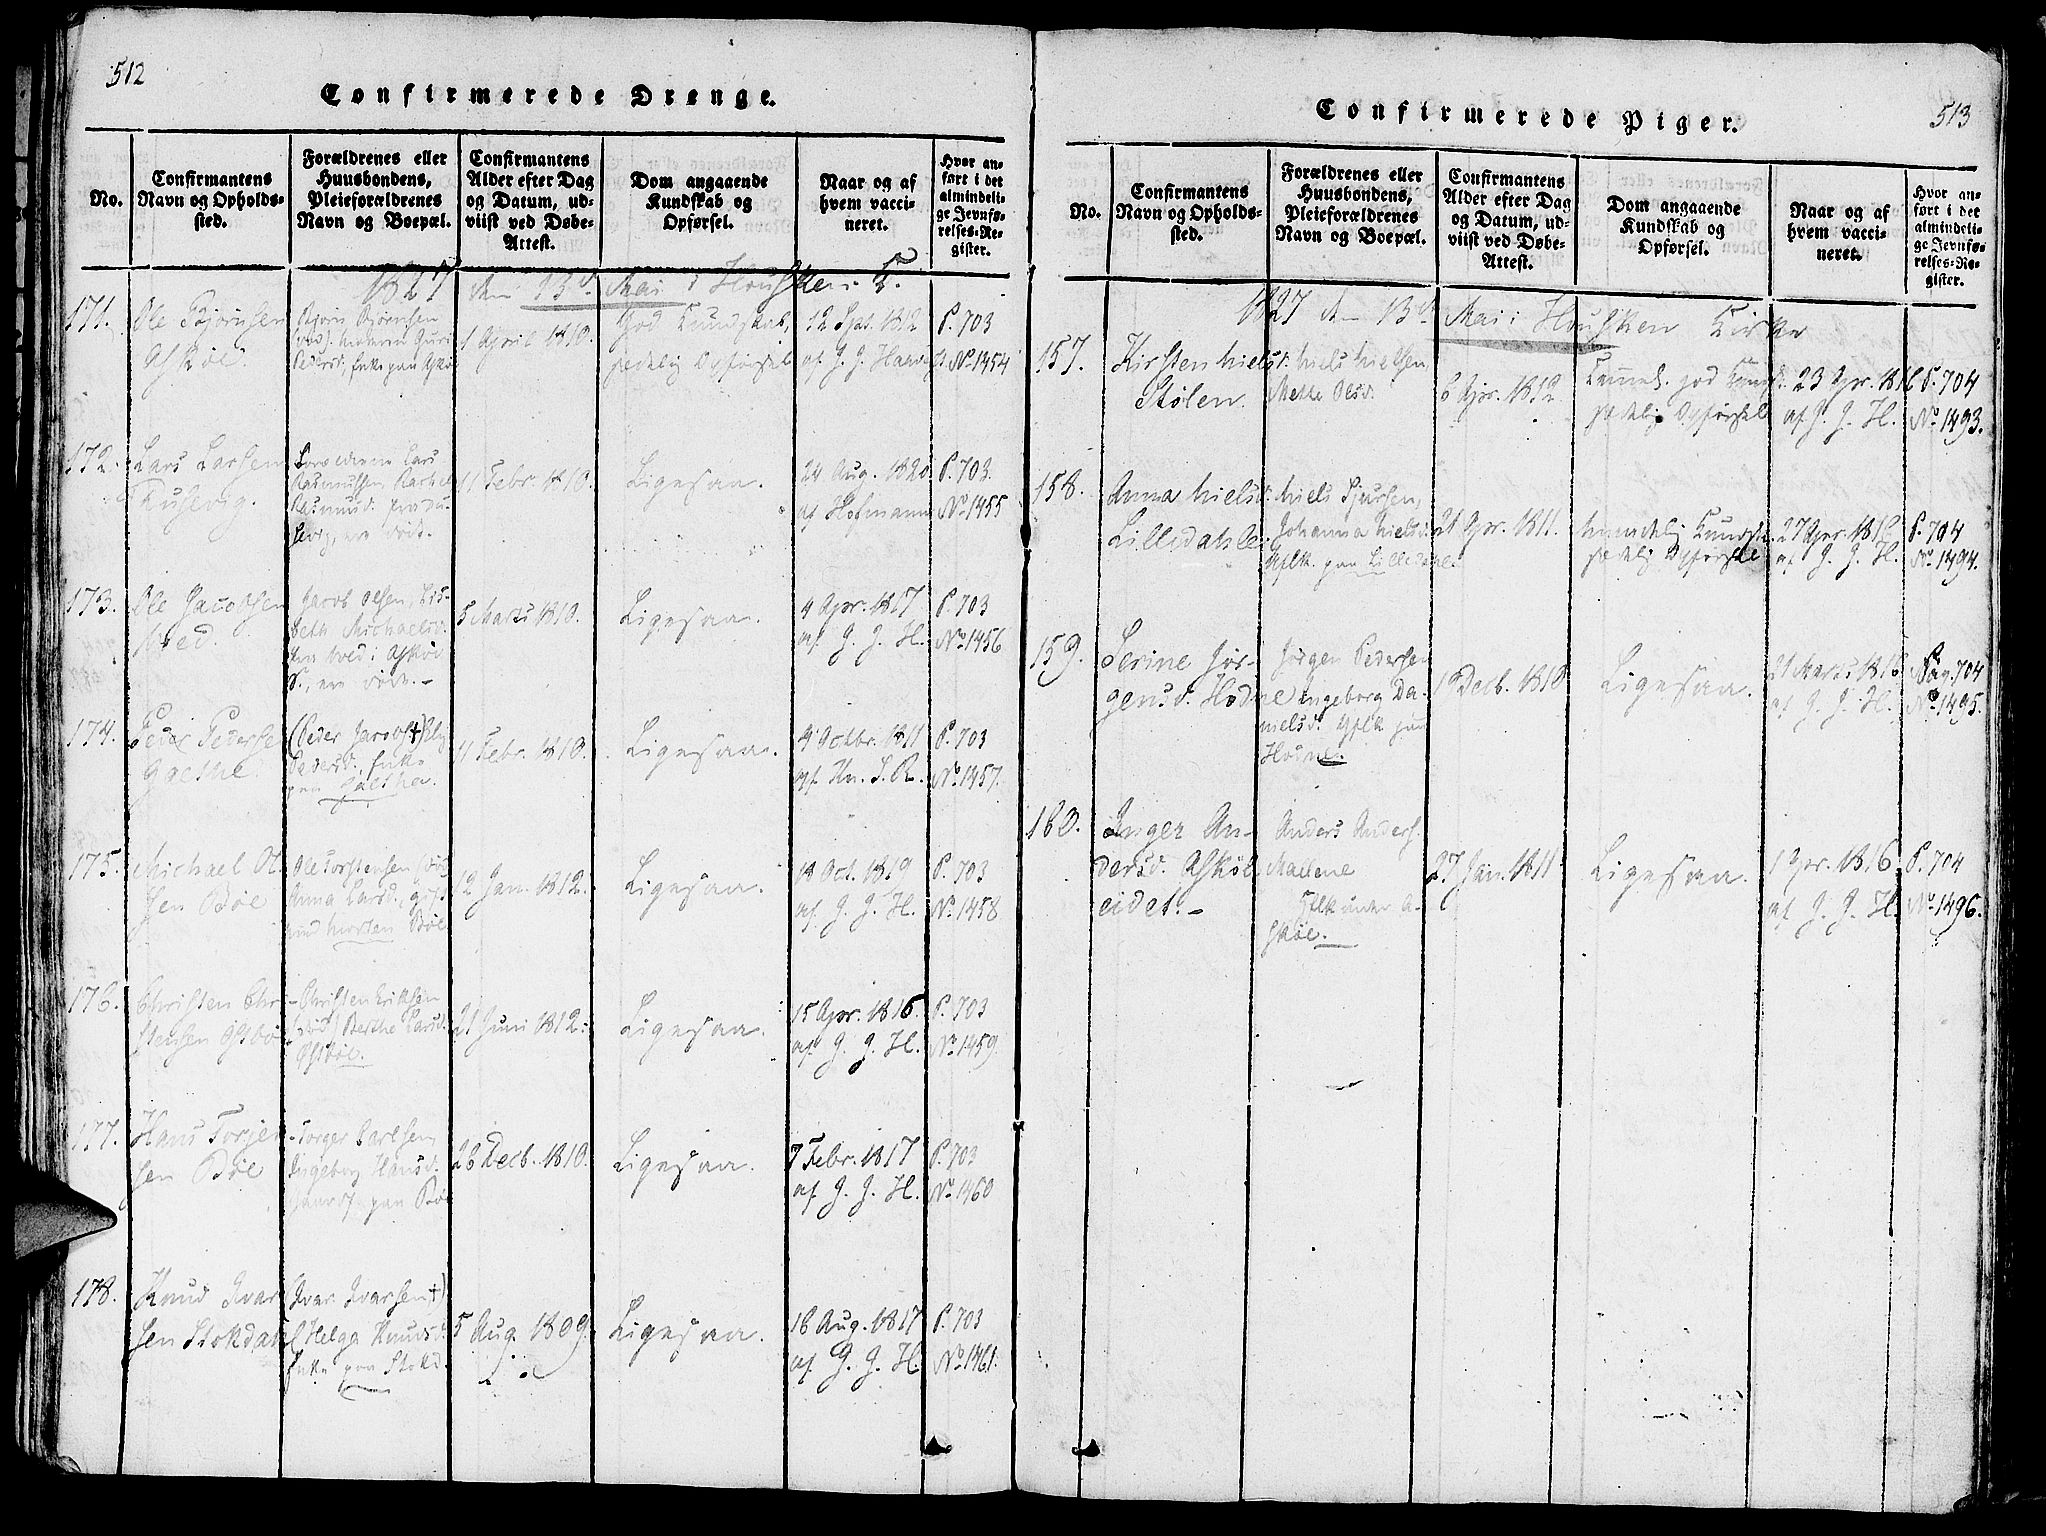 512
Confirmerede Drenge.
No.
Confirmantens
Navn og Opholds-
sted.
Forældrenes eller
Huusbondens,
Pleieforældrenes
Navn og Boepæl.
Confirmantens
Alder efter Dag
og Datum, ud-
viist ved Døbe-
Attest.
Dom angaaende
Kundskab og
Opførsel.
Naar og af
hvem vacci-
neret.
Hvor an-
ført i det
almindeli-
ge Jevnfø-
relses-Re-
gister.
1827 13 Mai i Housken K.
171.
Ole Bjørnsen
Askøe.
Bjørn Bjørnsen
Pedersd. Enke paa Askøe
1 April 1810.
God Kundskab,
sædelig Opførsel
12 Spt. 1812
af G. J.
P. 703
No 1454
172.
Lars Larsen
Fusevig.
Forældrene Lars
Rasmussen Rachel
Rasmusd. paa Fu-
sevig, ere døde.
11 Febr. 1810.
Ligesaa.
24 Aug. 1820.
af Hofmann
P. 703.
No 1455
173.
Ole Jacobsen
Jacob Olsen, Lis-
beth Michaelsd.
ere døde.-
5 Marts 1810.
Ligesaa.
4 Apr. 1817
af G. J. H.
P. 703
No 1456
174.
Peder Pederse
(Peder Jacobs†)
Pedersd. Enke
paa
11 Febr. 1810.
Ligesaa.
9 Octbr. 1811
af
P. 703
No 1457.
175.
Michael Ol-
sen Bøe
Ole Torstensen (død
Anna Larsd., gift
med Morten Bøe
12 Jan. 1812.
Ligesaa.
18 Oct. 1819
af G. J. H.
P. 703
No 1458
176.
Christen Chri-
stensen Østbø
Christen Eriksen
(død) Berthe Larsd.
Østbøe.
21 Juni 1812.
Ligesaa.
15 Apr. 1816.
af G. J. H.
P. 703
No 1459.
177.
Hans Torjer
sen Bøe
Torger Carlsen,
Ingeborg Hansd.
paa Bøe
28 Decb. 1810.
Ligesaa.
7 Febr. 1817
af G. J. H.
P. 703
No 1460
178.
Knud Ivar
sen Stokdahl
(Ivar Ivarsen†)
Helga Knudsd.
Enke paa Stokd.
5 Aug. 1809.
Ligesaa.
18 Aug. 1817
af G. J. H.
P. 703
No 1461.
513
Confirmerede Piger.
No.
Confirmantens
Navn og Opholds-
sted.
Forældrenes eller
Huusbondens,
Pleieforældrenes
Navn og Boepæl.
Confirmantens
Alder efter Dag
og Datum, ud-
viist ved Døbe-
Attest.
Dom angaaende
Kundskab og
Opførsel.
Naar og af
hvem vacci-
neret.
Hvor an-
ført i det
almindeli-
ge Jevnfø-
relses-Re-
gister.
1827 13 Mai i Housken Kirke
157.
Kirsten Nielsd.
Stølen.
Niels Nielsen,
Mette Olsd.
6 Apr. 1812
god Kundsk.
sædelig Opførsel
23 Apr. 1816
af G. J. H.
P. 704
No 1493.
158.
Anna Nielsd.
Lilledahle.
Niels
Johanna Nielsd.
Gflk. paa Lilledahle.
21 Apr. 1811.
Kundsk.
sædelig Opførsel
27 Apr. 1812
af G. J. H.
P. 704
No 1494.
159.
Serine Jør-
gensd. Hodne
Jørgen Pedersen
Ingeborg Da-
nielsd. Gflk. paa
Hodne.
1 Decb. 1810
Ligesaa.
21 Marts 1816
af G. J. H.
Pag. 704
No 1495.
160.
Inger An-
dersd. Askøe
eidet.-
Anders Anders.
Mallene
Gflk under A-
skøe.
27 Jan. 1811
Ligesaa.
1 Apr. 1816.
af G. J. H.
P. 704
No 1496.